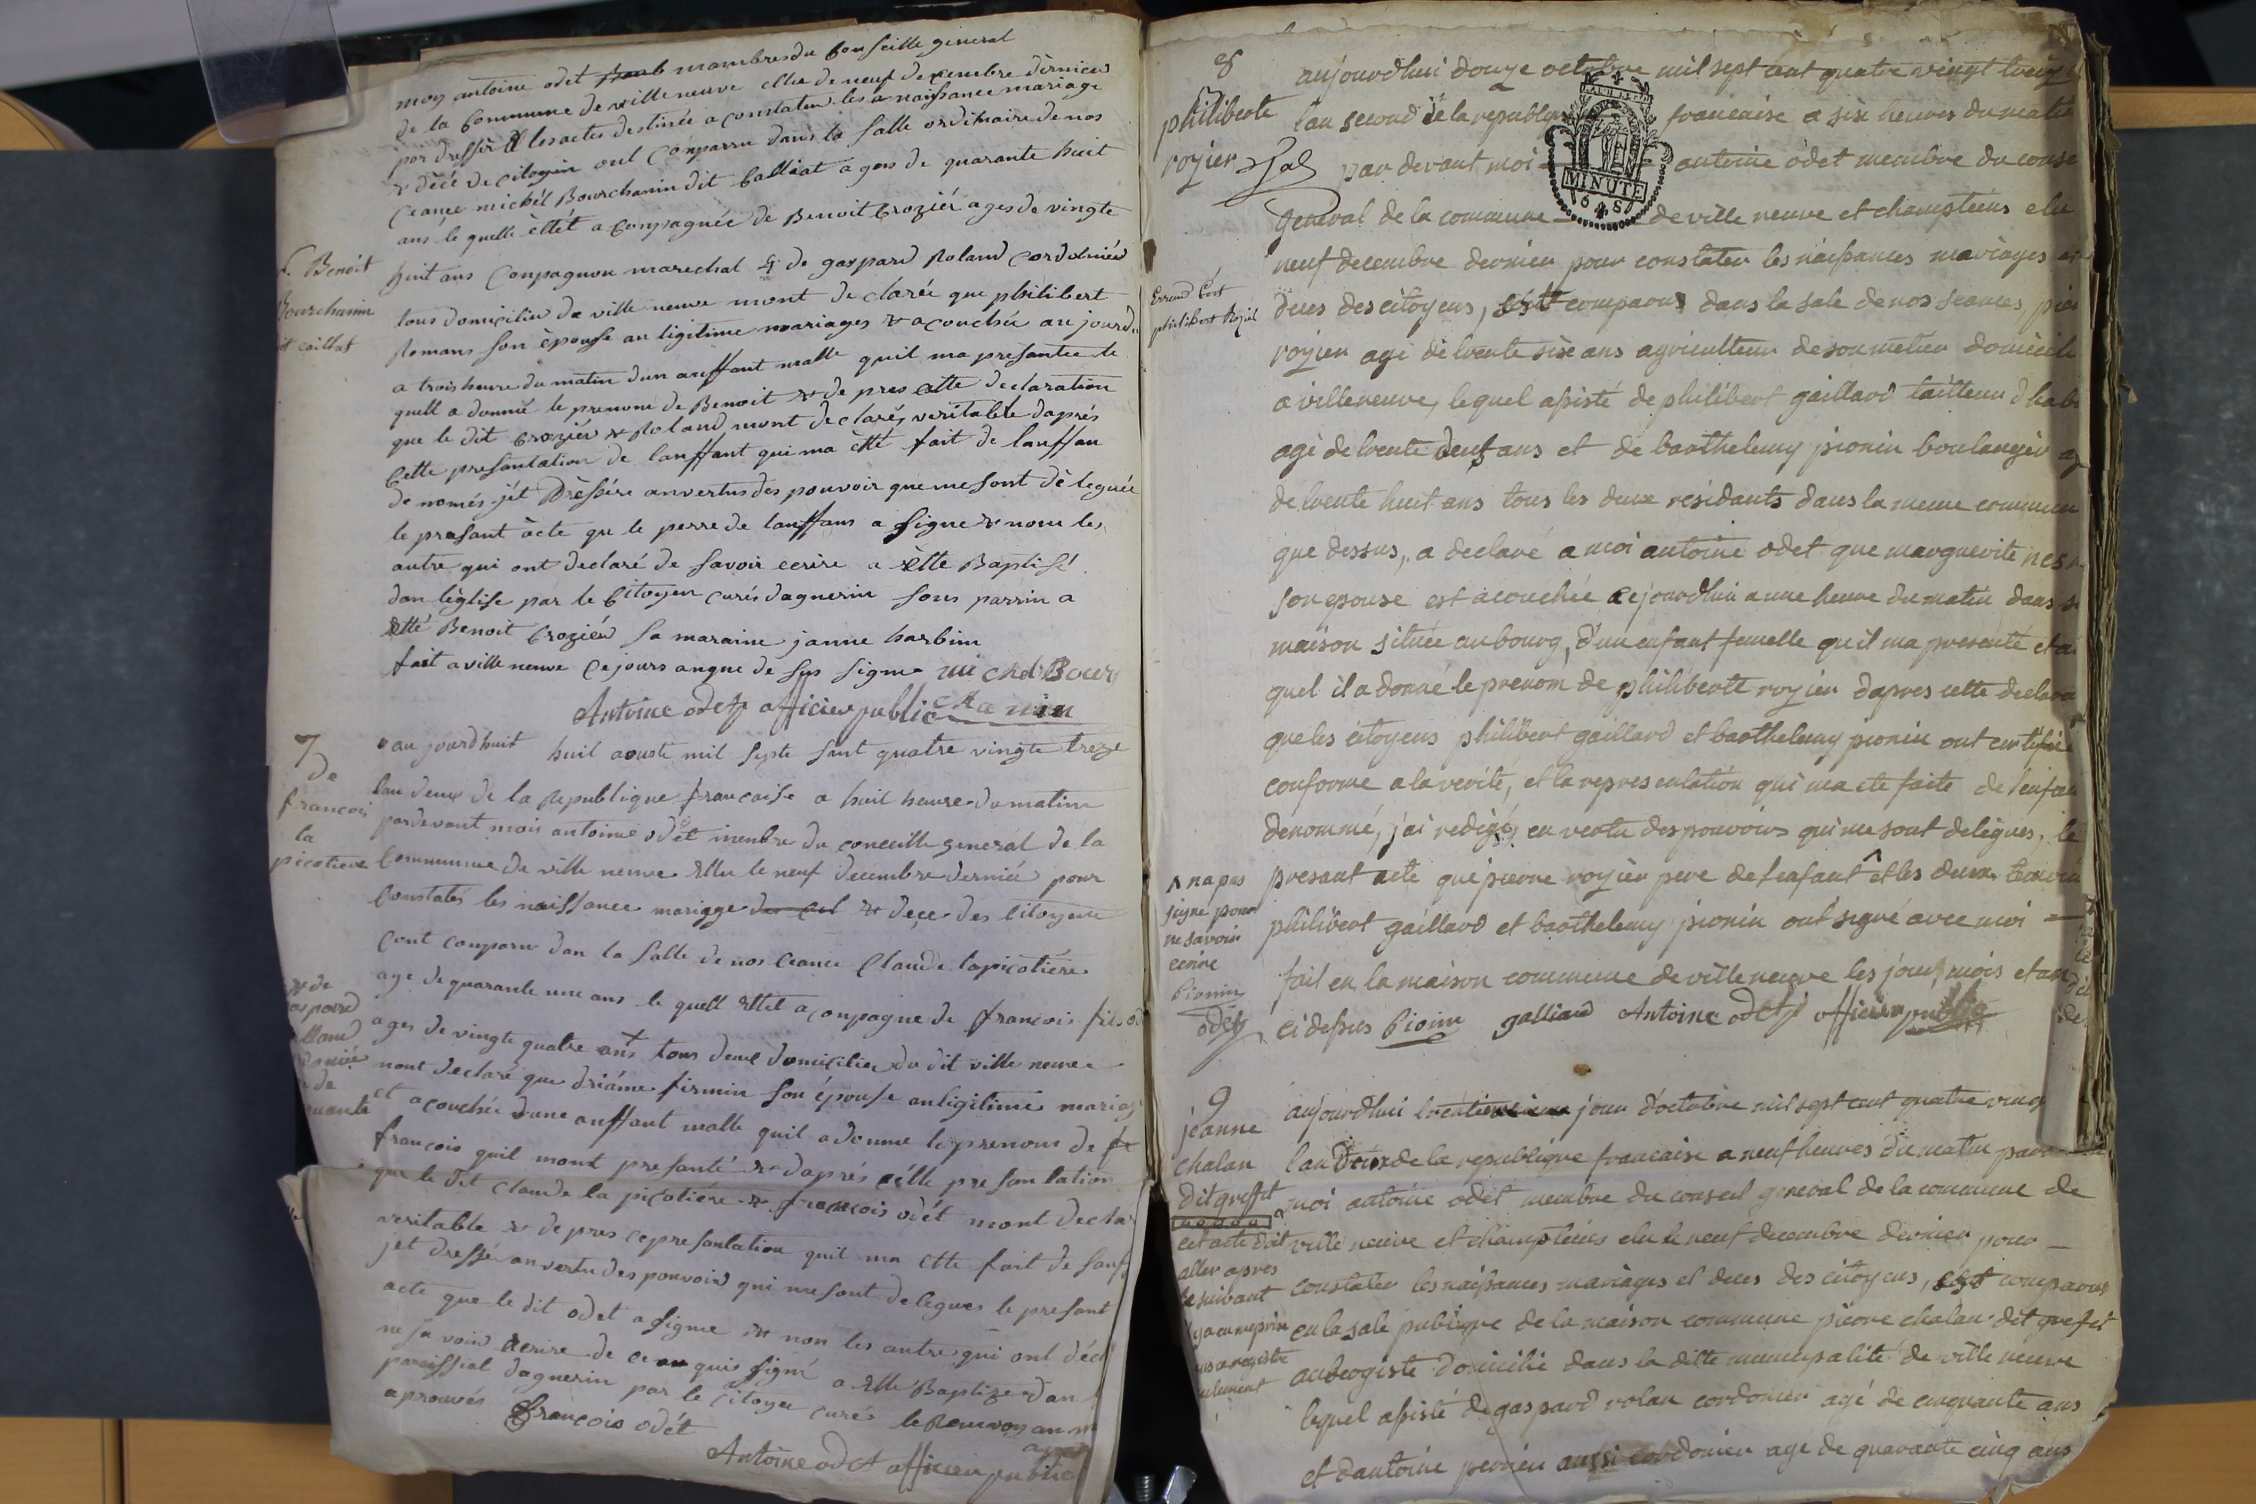 moy antoine odet membres du Conseille general
de la Commune de ville neuve ellu de neuf decembre dernier
por dressér les actes destinée a constater les naissance mariage
& décé de citoyin out Comparru dans la salle ordinaire de nos
Ceance michel Bourchanin dit Calliat ages de quarante huit
ans le quelle éttét a Compagnée de Benoit Croziér ages de vingte
6. Benoit
Bourchanin
dit caillat
huit ans Compagnon marechal & de gaspard Roland Cordoniér
tous domicilie de ville neuve mont declarée que philibert
Romans son épouse an ligitime mariages & acouchée au jourd
a trois heure du matin dun anffant malle quil ma presantee te
quell a donnée le prenom de Benoit & de pres cette declaration
que le dit Croziér & Roland mont declarés veritable daprés
Cette presantation de lanffant qui ma étté fait de lanffan
de només jét Dréssére anvertus des pouvoir que me sont dé leguée
le prasant àcte que le perre de lanffans a signe & nom les
autre qui ont declaré de savoir ecrire a étte Baptisé
dan léglise par le Citoyen curés dagnerin sous parrin a
étté Benoit Croziér sa maraine janne harbin
fait a ville neuve Ce jours anque de sus signe mi chel Bour
cha nin
Antoine odet officier public
7
de
francois
la
picotiere
aujourdhuit huit aouste mil septe sant quatre vingte treze
lan deux de la Republique francaise a huit heure du matin
pardevant mois antoine odét menbre du conceille general de la
Commune de ville neuve ellu le neuf decembre derniér pour
Constatés les naissance mariage & deçe des Citoyens
Cont comparu dan la salle de nos Ceance Claude lapicotiére
age de quarante une ans le quell ettét a conpagne de francois fils od
ages de vingte quatre ans tous deux domicilier du dit ville neuve
& de
gaspard
Rolland
cordoniér
de
quarante
mont declaré que driáme firmin son épouse anligitime mariag
et acouchée dune anffant malle quil a donne le prenom de
francois quil mont presanté & daprés cette presantation
que le dit Claude la picotiére & francois odét mont decla
veritable & de pres ce presantation quil ma ette fait de lanf
jet dressé anvertu des pouvoir qui me sont delegues le presant
acte que le dit odet a signe & non les autre qui ont décl
ne sa voir ecrire de ce quis signé a ette Baptize dan
paroissial dagnerin par le Citoyen curés
aprouvés
francois odét
Antoine odet officier public
8
philiberte
royier
aujourdhui douze octobre mil sept cent quatre vingt treize
lan second de la republique francaise a six heures du matin
MINUTE
6 S
par devant moi antoine odet membre du conse
general de la commune de ville neuve et champteins elu
neuf decembre dernier pour constater les naissances mariages
Errend Cest
philibert Roziel
deces des citoyens, est comparus dans la sale de nos seances, pier
royier agé de trente six ans agriculteur de son metier domicili
a villeneuve, lequel assisté de philibert gaillard tailleur d habi
agé de trente deux ans et de barthelemy pionin boulangér ag
de trente huit ans tous les deux residants dans la meme commun
que dessus, a declaré a moi antoine odet que marguerite
son epouse est acouchée cejourdhui a une heure du matin dans s
maison située au bourg, d'un enfant femelle qu'il ma presenté et a
quel il a donné le prenom de philiberte royier dapres cette declara
que les citoyens philibert gaillard et barthelemy pionin ont certifié
conforme a la verité, et la representation qui ma ete faite de lenfan
denommé, j'ai redigé, en vertu des pouvoirs qui me sont delegues, le
^ na pas
signe pour
ne savoir
ecrire
Pionin
odet
present acte que pierre royier pere de lenfant ^ et les deux temoin
philibert gaillard et barthelemy pionin ont signé avec moi
fait en la maison commune de ville neuve les jour, mois et an
ci dessus Pionin galliard Antoine odet officier public
9
jeanne
chalan
dit greffet
cet acte doit
aller apres
le suivant
aujourdhui jour d'octobre mil sept cent quatre ving
lan deux de la republique francaise a neuf heures du matin par
moi antoine odet membre du conseil general de la commune de
ville neuve et champteins elu le neuf decembre dernier pour
constater les naissances mariages et deces des citoyens, est comparus
en la sale publique de la maison commune pierre chalan dit grefet
aubergiste domicilié dans la ditte municipalité de ville neuve
lequel assisté de gaspard rolan cordonier agé de cinquante ans
et dantoine perrier aussi cordonier age de quarante cinq ans